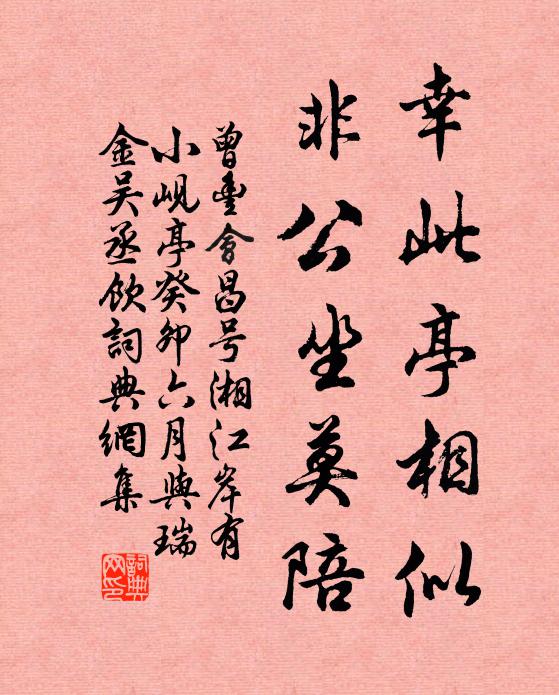 幸此亭相似
非公坐莫陪
曾豊會昌号湘江岸有
小峴亭癸卯六月與瑞
金吴丞飲詞典網集
詞典网印